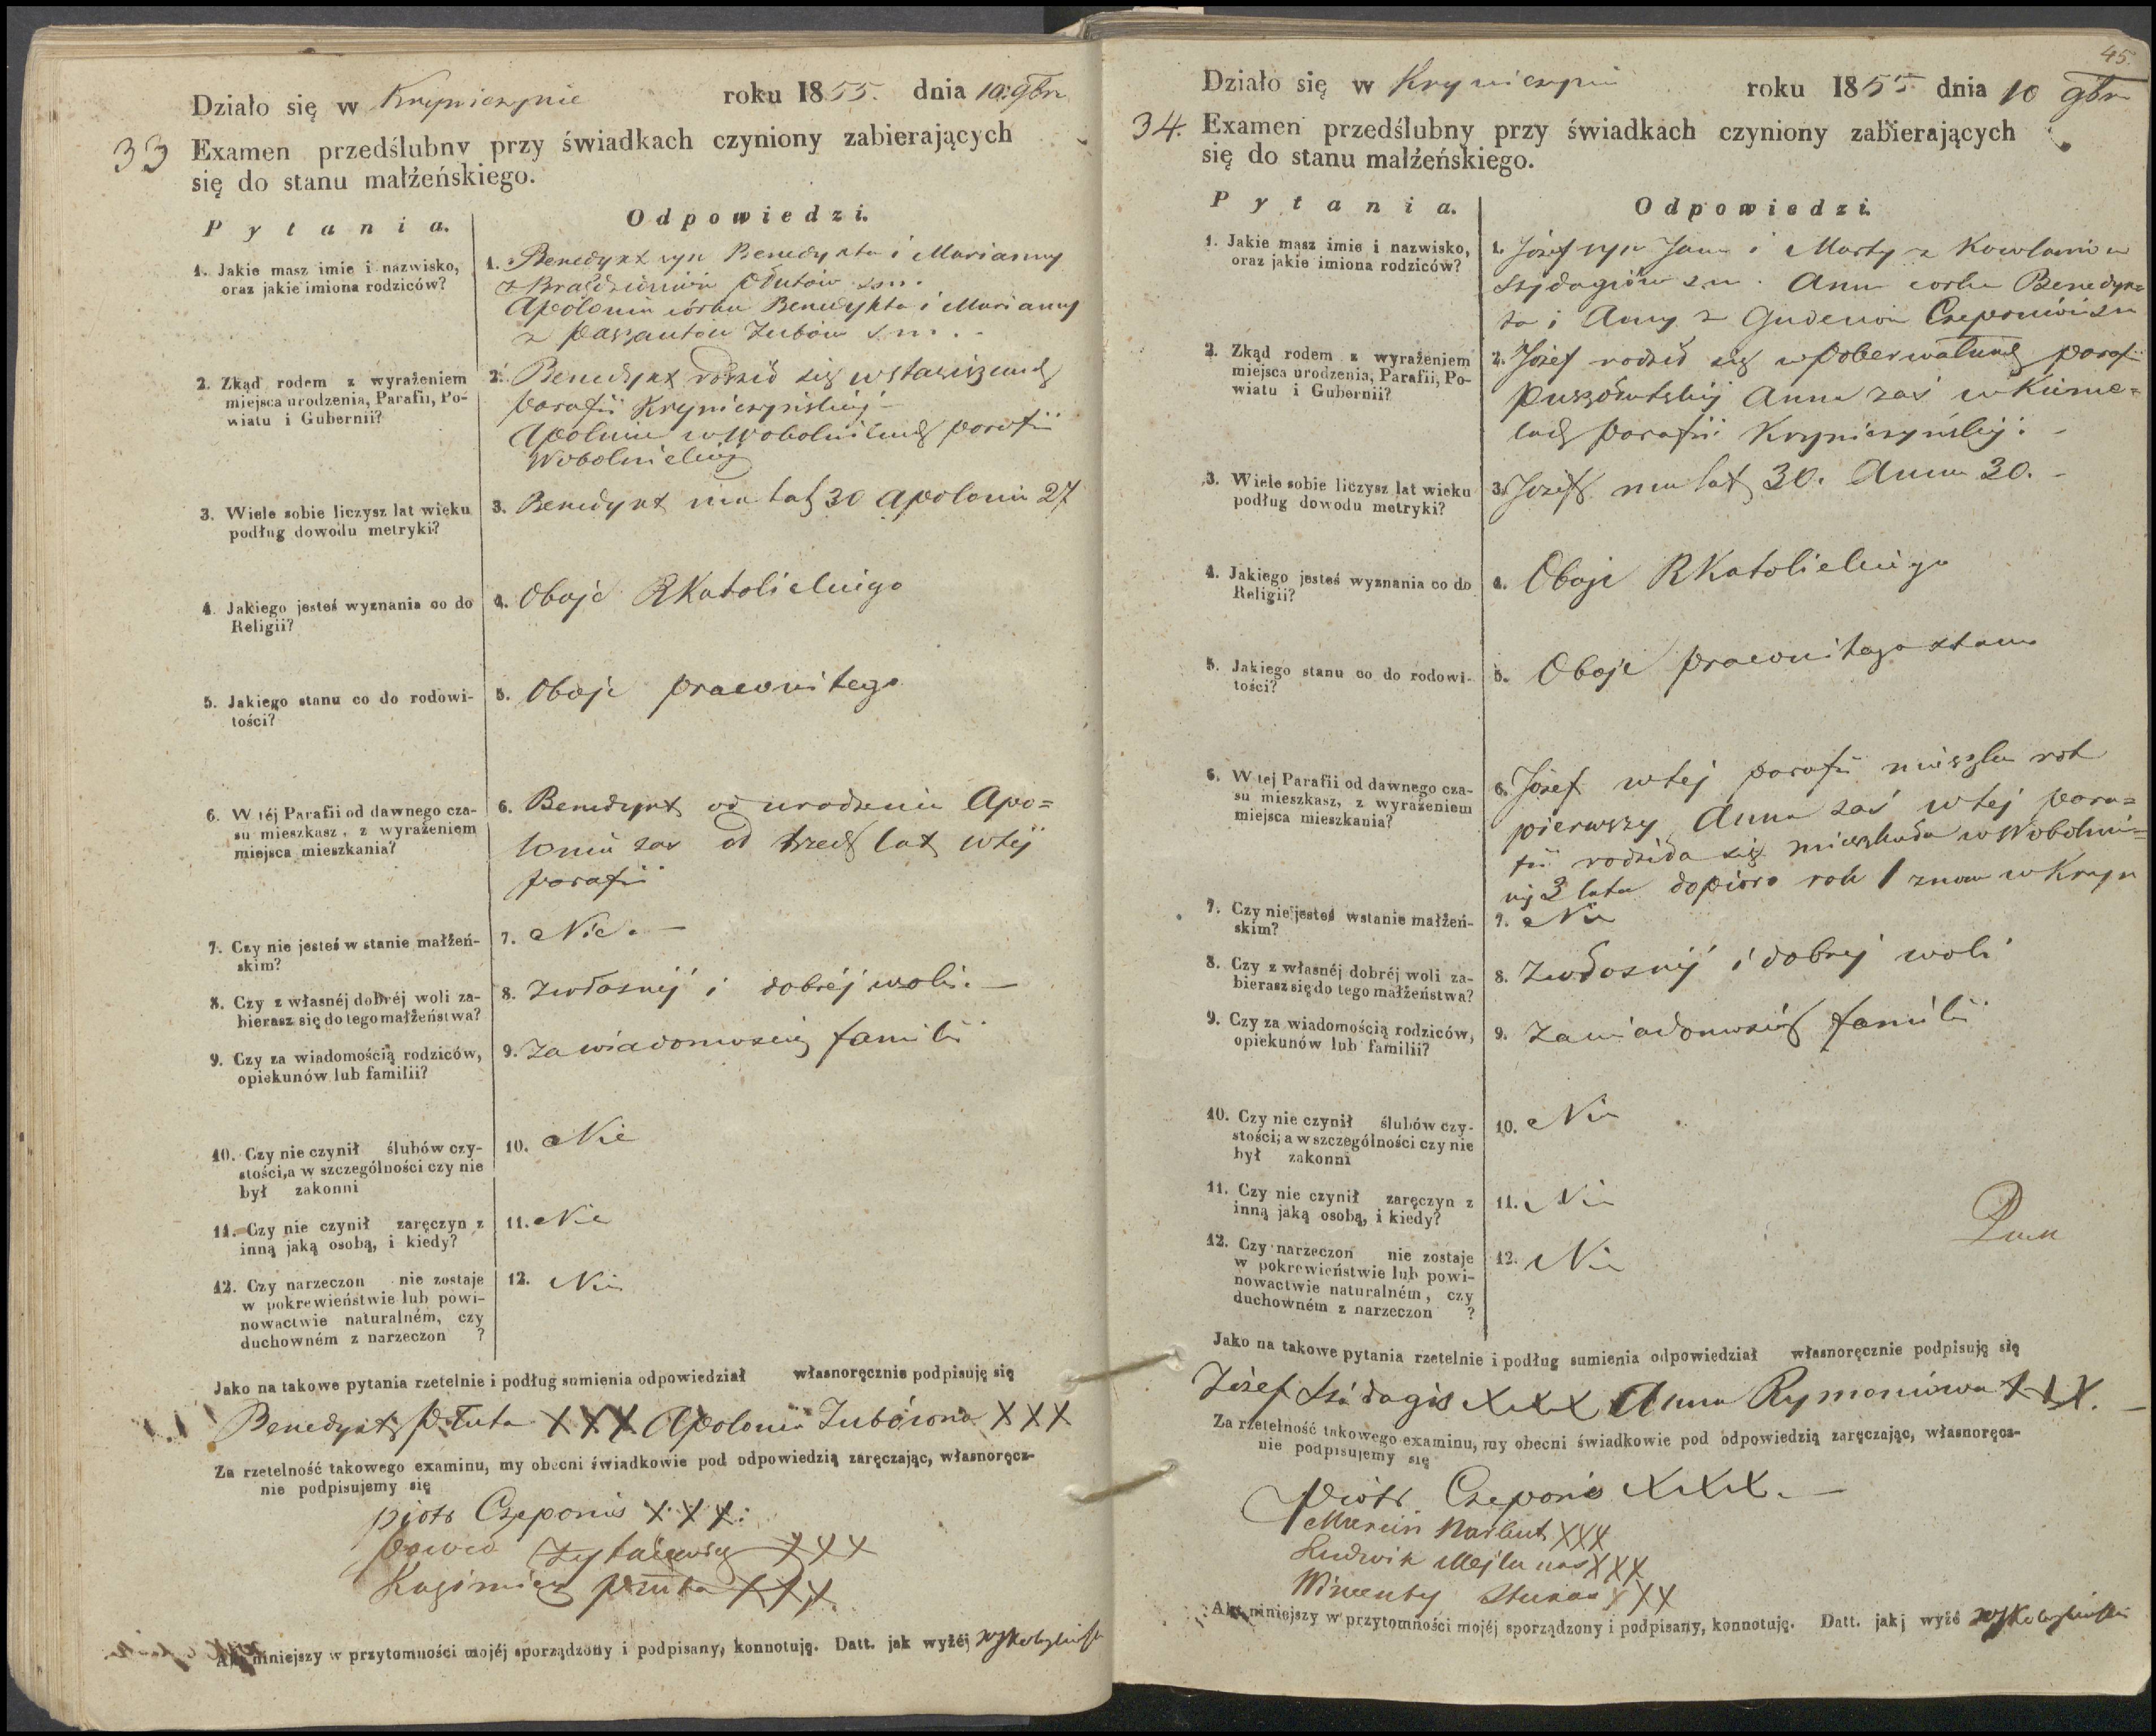 Działo się w Krynicznie roku 1855. dnia 10. 9br
33 Examen przedślubny przy świadkach czyniony zabierających
się do stanu małżeńskiego.
Pytania. Odpowiedzi.
1. Jakie masz imie i nazwisko,
oraz jakie imiona rodziców?
1. Benedykt syn Benedykta i Marianny
Apolonia córka Benedykta i Marianny
2. Zkąd rodem z wyrażeniem
miejsca urodzenia, Parafii, Po-
wiatu i Gubernii?
2. Benedykt rodził się w
parafii Kryniczyńskiej
Apolonia w Wobolnikach parafii
Wobolnickiej
3. Wiele sobie liczysz lat wieku
podług dowodu metryki?
3. Benedykt ma lat 30 Apolonia 27
4. Jakiego jesteś wyznania co do
Religii?
4. Oboje RKatolickiego
5. Jakiego stanu co do rodowi-
tości?
5. Oboje pracowitego
6. W téj Parafii od dawnego cza-
su mieszkasz, z wyrażeniem
miejsca mieszkania?
6. Benedykt od urodzenia Apo=
lonia zas od trzech lat w tej
parafii
7. Czy nie jesteś w stanie małżeń-
skim?
7. Nie. —
8. Czy z własnéj dobréj woli za-
bierasz się do tego małżeństwa?
8. Zwłasnéj i dobréj woli. —
9. Czy za wiadomością rodziców,
opiekunów lub familii?
9. Za wiadomością familii
10. Czy nie czynił ślubów czy-
stości, a w szczególności czy nie
był zakonni
10. Nie
11. Czy nie czynił zaręczyn z
inną jaką osobą, i kiedy?
11. Nie
12. Czy narzeczon nie zostaje
w pokrewieństwie lub powi-
nowactwie naturalném, czy
duchowném z narzeczon ?
12. Nie
Jako na takowe pytania rzetelnie i podług sumienia odpowiedział własnoręcznie podpisuję się
Benedykt Płuta XXX Apolonia Zubówna XXX
Za rzetelność takowego examinu, my obecni świadkowie pod odpowiedzią zaręczając, własnoręcz-
nie podpisujemy się
Piotr Czeponis XXX.
XXX
Kazimierz Płuta XXX.
Akt niniejszy w przytomności mojéj sporządzony i podpisany, konnotuję. Datt. jak wyżéj
45.
Działo się w Krynicznie roku 1855 dnia 10 9br
34. Examen przedślubny przy świadkach czyniony zabierających
się do stanu małżeńskiego.
Pytania. Odpowiedzi.
1. Jakie masz imie i nazwisko,
oraz jakie imiona rodziców?
1. Józef syn Jana i Marty z
Anna córka Benedyk=
ta i Anny z
2. Zkąd rodem z wyrażeniem
miejsca urodzenia, Parafii, Po-
wiatu i Gubernii?
2. Józef rodził się w parafii
Anna zaś w Kirme=
lach parafii Kryniczyńskiej. -
3. Wiele sobie liczysz lat wieku
podług dowodu metryki?
3. Józef ma lat 30. Anna 30. -
4. Jakiego jesteś wyznania co do
Religii?
4. Oboje RKatolickiego
5. Jakiego stanu co do rodowi-
tości?
5. Oboje pracowitego stanu
6. W tej Parafii od dawnego cza-
su mieszkasz, z wyrażeniem
miejsca mieszkania?
6. Józef w tej parafii mieszka rok
pierwszy, Anna zaś w tej para=
fii rodziła się mieszkała w Wobolni=
3 lata dopiero rok 1 znow w Kryn
7. Czy nie jesteś wstanie małżeń-
skim?
7. Nie
8. Czy z własnéj dobréj woli za-
bierasz się do tego małżeństwa?
8. Zwłasnéj i dobrej woli
9. Czy za wiadomością rodziców,
opiekunów lub familii?
9. Za wiadomością familii
10. Czy nie czynił ślubów czy-
stości, a w szczególności czy nie
był zakonni
10. Nie
11. Czy nie czynił zaręczyn z
inną jaką osobą, i kiedy?
11. Nie
12. Czy narzeczon nie zostaje
w pokrewieństwie lub powi-
nowactwie naturalném, czy
duchowném z narzeczon ?
12. Nie
Jako na takowe pytania rzetelnie i podług sumienia odpowiedział własnoręcznie podpisuję się
Józef XXX Anna Rymoniowa XXX. —
Za rzetelność takowego examinu, my obecni świadkowie pod odpowiedzią zaręczając, własnoręcz-
nie podpisujemy się
Piotr Czeponis XXX. —
Marcin Narbut XXX
Ludwik Mejlunas XXX
Wincenty XXX
Akt niniejszy w przytomności mojéj sporządzony i podpisany, konnotuję. Datt. jak wyżé